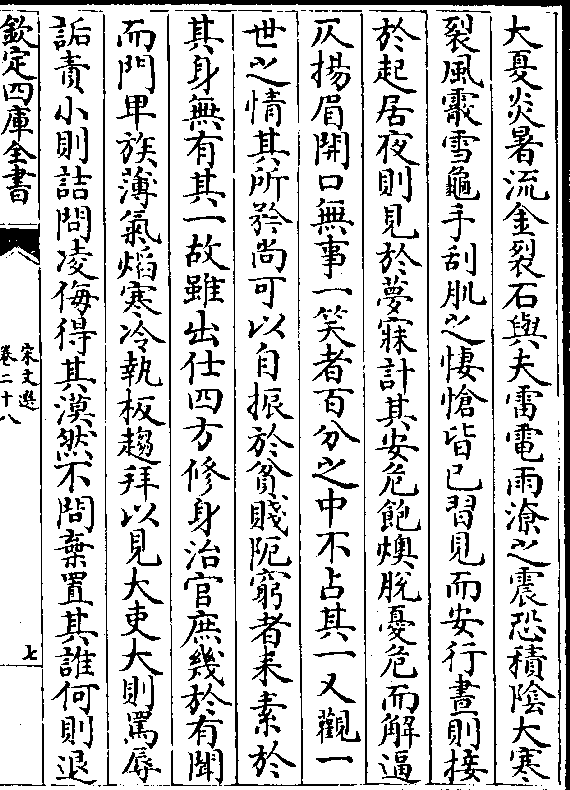 大夏炎暑流金裂石與夫雷電雨潦之震恐積陰大寒
裂風霰雪龜手刮肌之悽愴皆已習見而安行晝則接
於起居夜則見於夢寐計其安危飽燠脫憂危而解逼
仄揚眉開口無事一笑者百分之中不占其一又觀一
世之情其所矜尚可以自振於貧賤阨窮者耒素於
其身無有其一故雖出仕四方修身治官庶幾於有聞
而門卑族薄氣焰寒冷執板趨拜以見大吏大則罵辱
詬責小則詰問凌侮得其漠然不問棄置其誰何則退
欽定四庫全書
宋文選
卷二十八
七